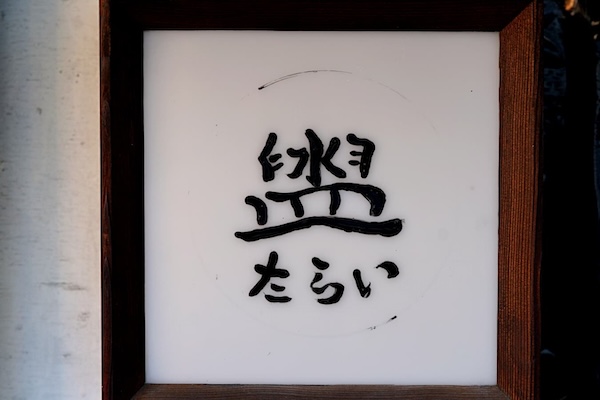 盥
たらい